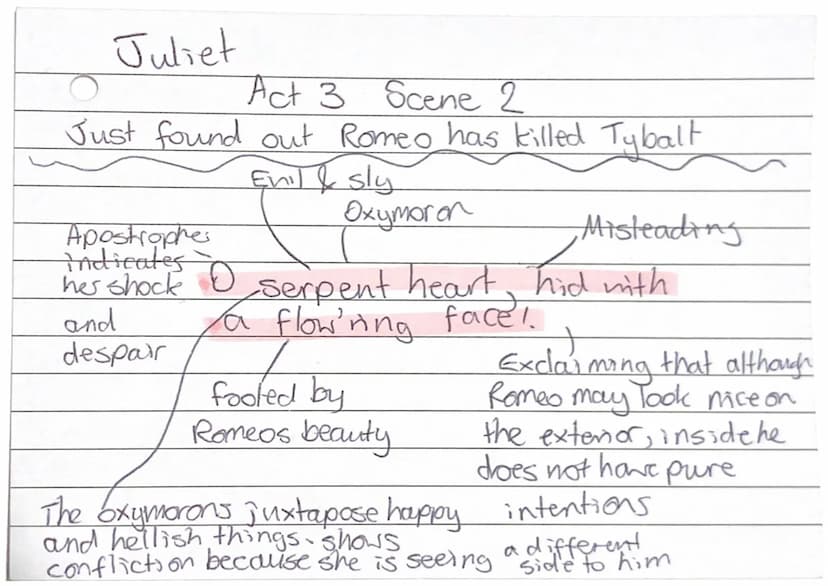 Juliet
Act 3 Scene 2
Just found out Romeo has killed Tybalt
Evil & sly
Oxymoron
Misleading
Apostrophe
indicates
her shock
and
despair
O serpent heart, hid with
a flow'ring face!
fooled by
Romeos beauty
Exclaiming that although
Romeo may look nice on
the exterior, inside he
does not have pure
intentions
The oxymorons juxtapose happy
and hellish things. shows
confliction because she is seeing a different
side to him